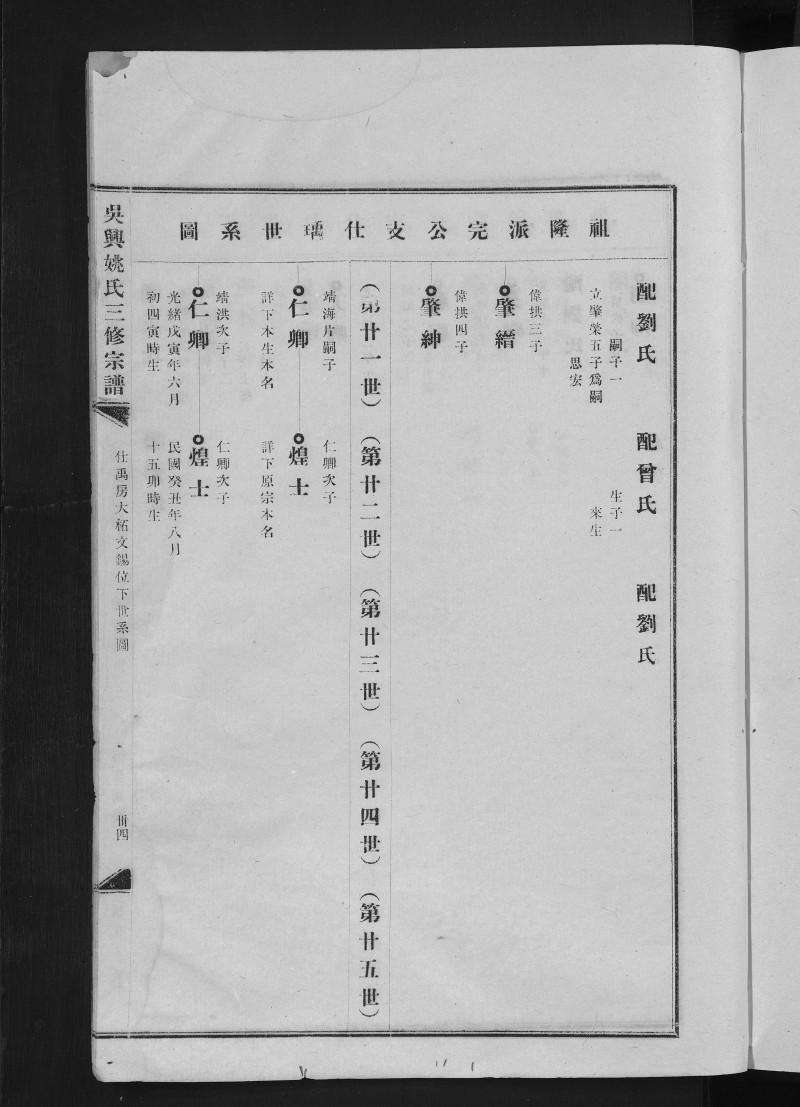 祖隆派完公支仕瑀世系圖
配劉氏 配曾氏 配劉氏
嗣子一 生子一
立肇榮五子爲嗣 來生
思宏
偉拱三子
肇縉
偉拱四子
肇紳
(第廿一世) (第廿二世) (第廿三世) (第廿四世) (第廿五世)
靖海片嗣子 仁卿次子
仁卿 煌士
詳下本生本名 詳下原宗本名
靖洪次子 仁卿次子
仁卿 煌士
光緒戊寅年六月 民國癸丑年八月
初四寅時生 十五卯時生
吳興姚氏三修宗譜
仕禹房大柘文錫位下世系圖
卌四